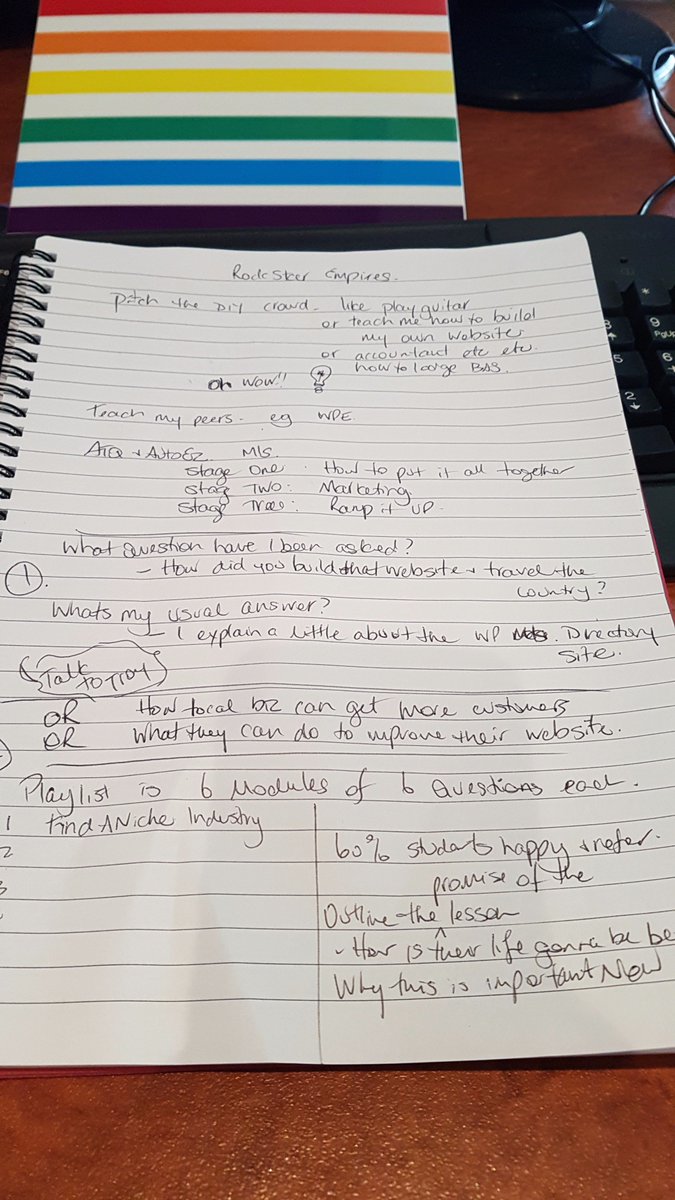 Rockstar Empires.
Pitch the DIY crowd. like play guitar
or teach me how to build
my own website
or accountant etc etc.
how to lodge BAS.
Oh wow!!
Teach my peers. eg WPE.
ATQ + AutoEz. MIS.
Stage One. How to put it all together
Stage Two: Marketing
Stage Tree: Ramp it UP.
What question have I been asked?
1. - How did you build that website + travel the
country?
Whats my usual answer?
- I explain a little about the WP Directory
site.
Talk to Troy
OR How local biz can get more customers
OR What they can do to improve their website.
Playlist is 6 Modules of 6 Questions each.
1 Find A Niche Industry
2
3
60% students happy + refer.
promise of the
Outline the lesson
- How is their life gonna be be
Why this is important Now
9
PgUp
6
5
2
*